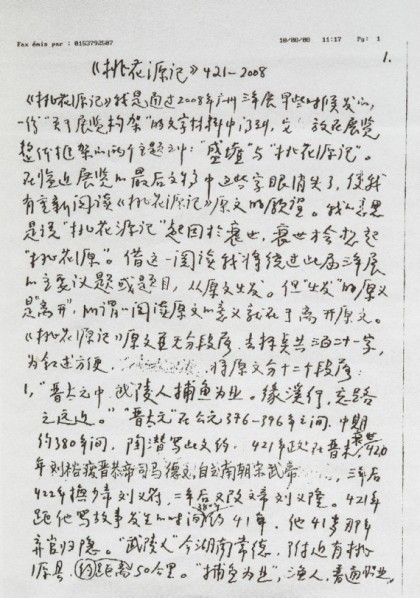 Fax émis par : 0153792507 10/08/08 11:17 Pg: 1
1.
《桃花源记》421-2008
《桃花源记》我是通过2008年广州三年展早些时候发的，
一份“关于展览构架”的文字材料中了到，它放在展览
整体框架的两个主题之中：“盛墟”与“桃花源记”。
在临近展览的最后文件中这些字眼消失了，使我
有重新阅读《桃花源记》原文的愿望。我的意思
是说“桃花源记”起因于衰世，衰世才会想起
“桃花源”。借这一阅读我将绕过此届三年展
的主要议题或题目，从原文出发。但“出发”的原义
是“离开”，所谓的阅读原文的意义就在于离开原文。
《桃花源记》原文并无分段落，去标点共三百二十一字，
为叙述方便， 将原文分十二个段落：
1，“晋太元中，武陵人捕鱼为业。缘溪行，忘路
之远近。”“晋太元”在公元376-396年之间，中期
约380年间，陶潜写此文约421年政在晋末衰世，420
年刘裕废晋恭帝司马德文，自立南朝宋武帝 ，三年后
422年换少帝刘义符，二年后又改文帝刘义隆。421年
距他写故事发生的时间380年约41年，他41岁那年
弃官归隐。“武陵人”今湖南常德，附近有桃
源县，约距离50公里。“捕鱼为业”，渔人，普通职业，